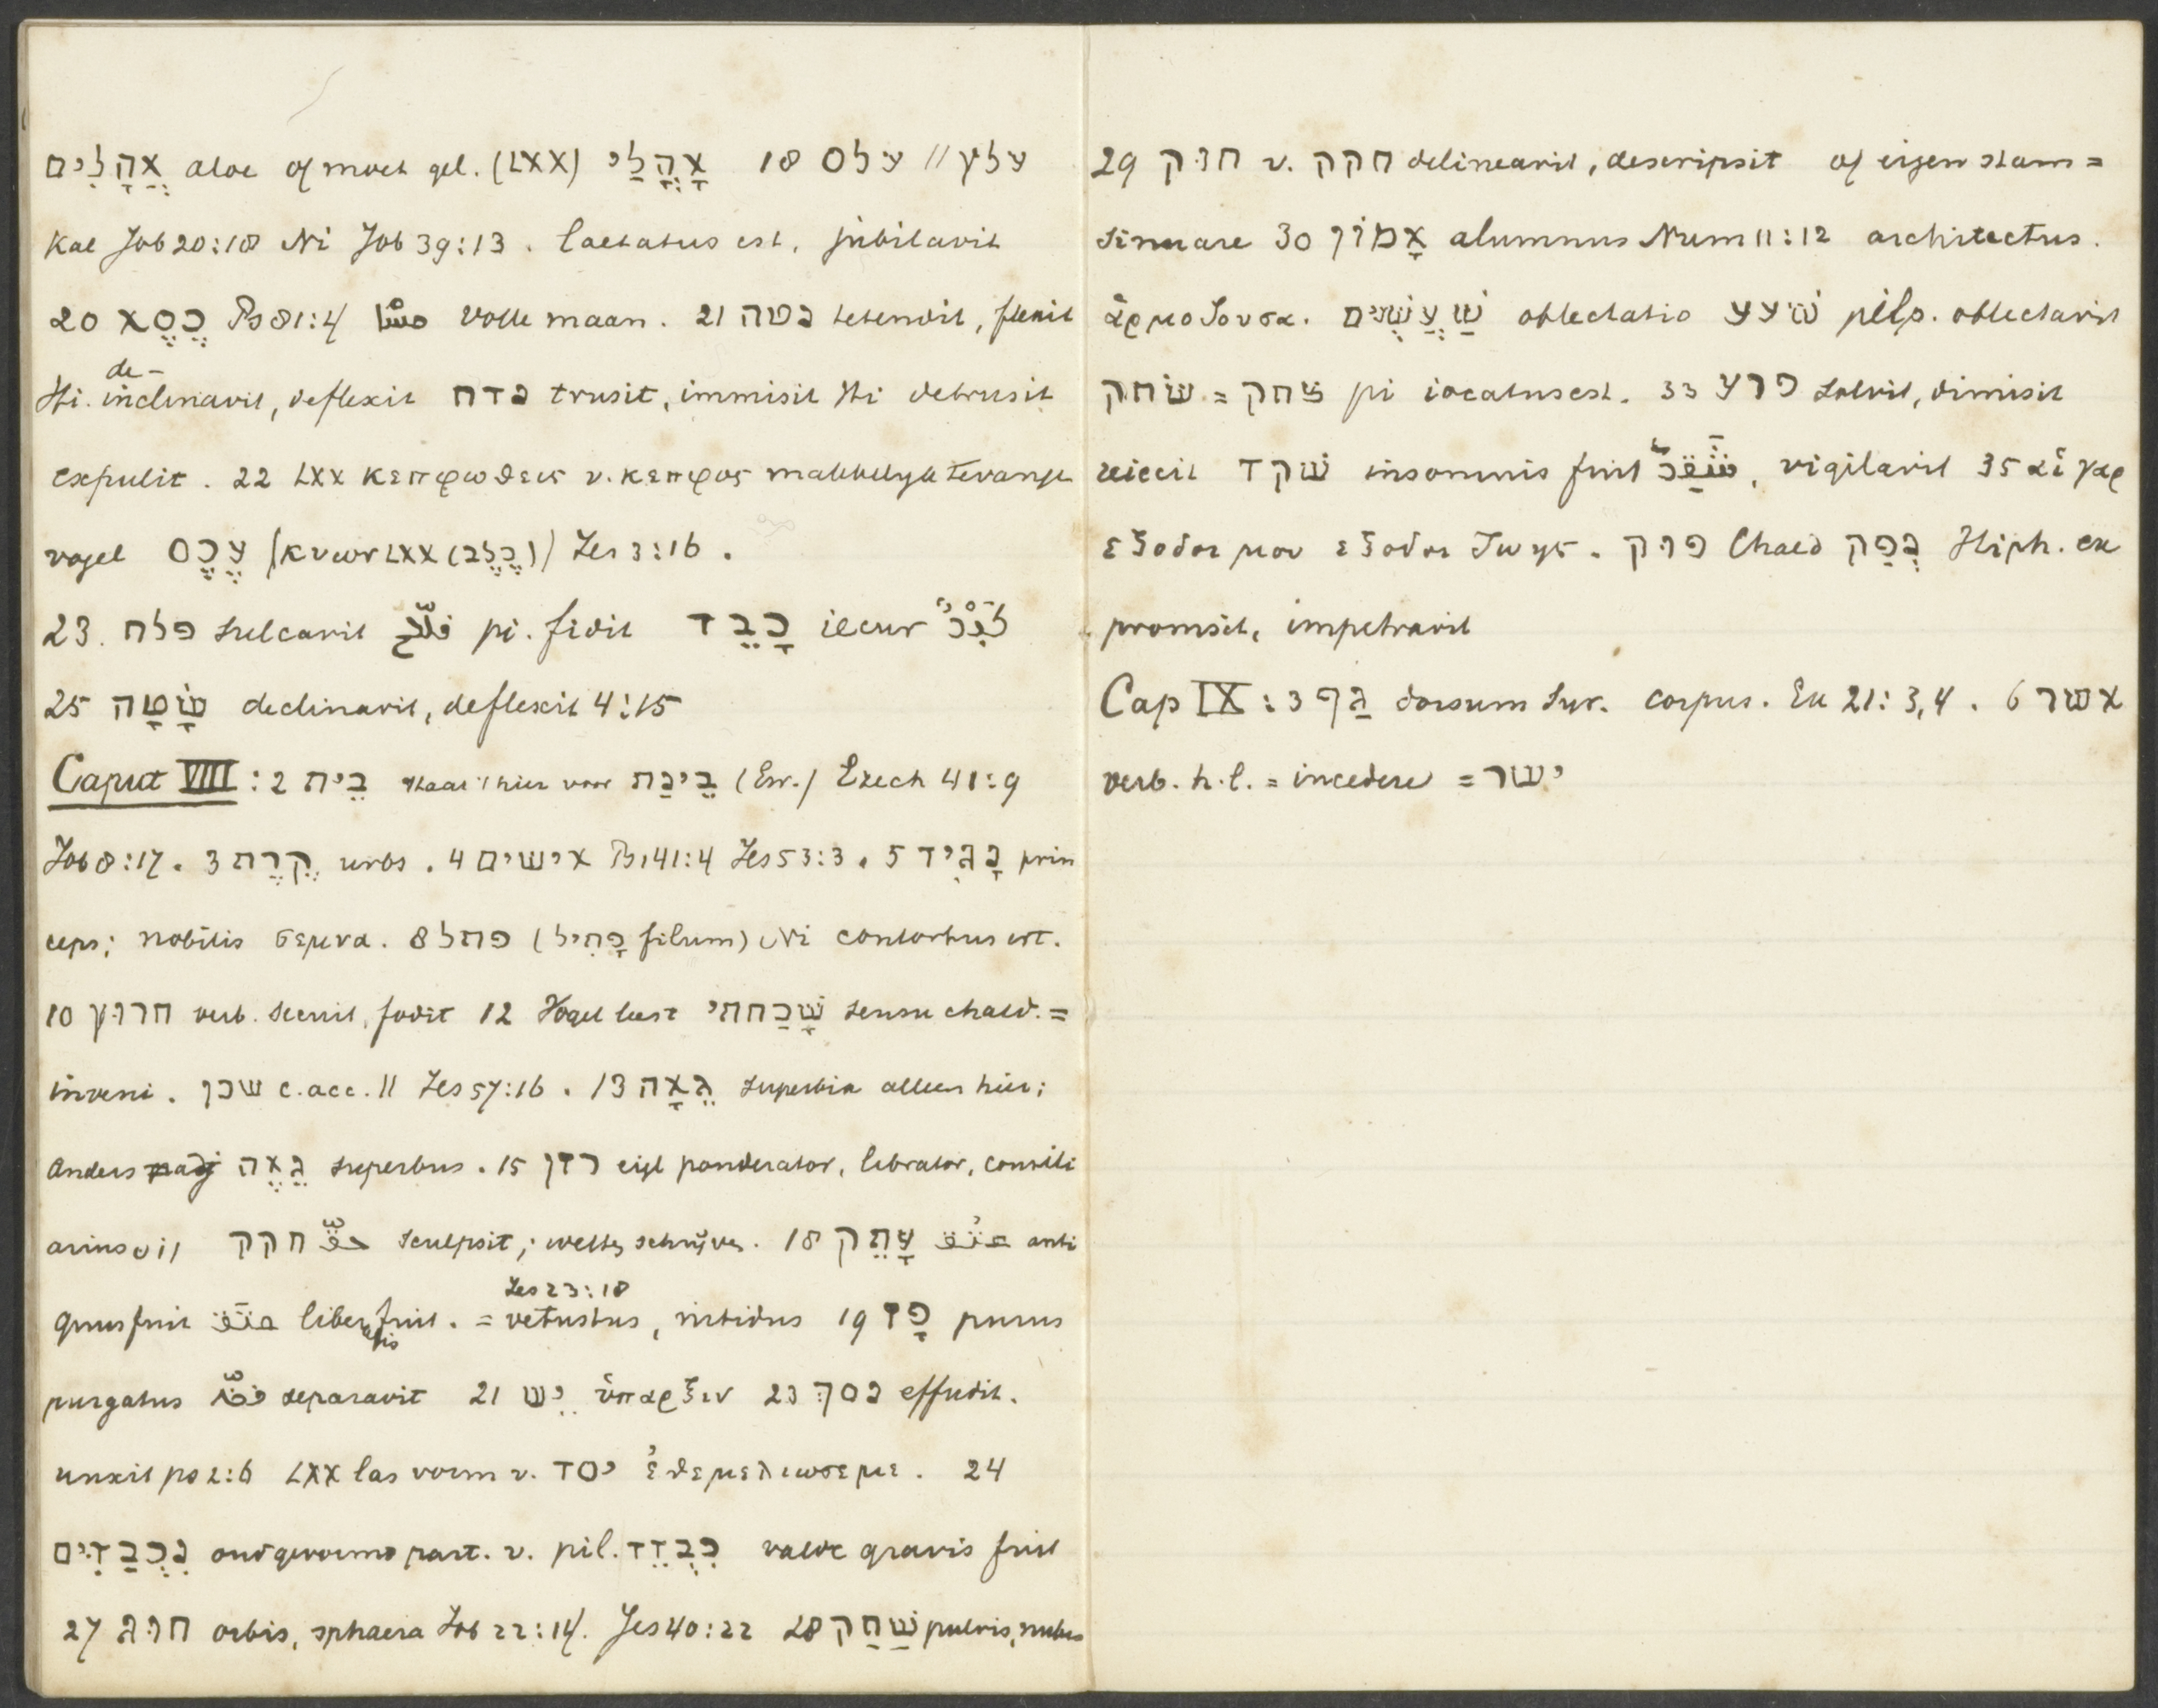 אֲהָלִים aloe of moet gel. (LXX) אָהֳלַי 18 עלס // עלץ
Kal Job 20:18 Ni Job 39:13. laetatus est, jubilavit
20 כֶּסֶא Ps 81:4 volle maan. 21 נטה tetendit, flexit
Hi. de-inclinavit, deflexit נדח trusit, immisit Hi detrusit
expulit. 22 LXX κεπφωθεις v. κεπφος makkelijk te vangen
vogel עֶכֶס (כֶּלֶב) LXX Jes 3:16.
23. פלח sulcavit فلح pi. fidit כָּבֵד iecur كَبِدٌ
25 שָׂטָה declinavit, deflexit 4:15
Caput VIII: 2 בֵּית staat hier voor בֵּינַת (Ew.) Ezech 41:9
Job 8:17. 3 קֶרֶת urbs. 4 אישים Ps 141:4 Jes 53:3. 5 נָגִיד prin
ceps; nobilis σεμνα. 8 פתל (פָּתִיל filum) Ni contortus est.
10 חרוץ verb. secuit, fodit 12 Vogel leest שָׁכַחתי sensu chald. =
inveni. שכן c. acc. // Jes 57:16. 13 גֵּאָה superbia alleen hier;
Anders adj גֵּאֶה superbus. 15 רזן eigl ponderator, librator, consili
arius חקק حقّ sculpsit; wetten schrijven. 18 עָתֵק عتُق anti
quus fuit عتَق liber fuit. = Jes 23:18 vetustus, nitidus 19 פָּז purus
purgatus فضّ separavit 21 יֵשׁ ὕπαρξιν 23 נסך effudit.
unxit ps 2:6 LXX las vorm v. יסד ἐθεμελιωσε με. 24
נִכְבַּדִּים oud gevormd part. v. pil. כִּבְדֵד valde gravis fuit
27 חוג orbis, sphaera Job 22:14. Jes 40:22 28 שַׁחַק pulvis, nubes
29 חוק v. חקק delineavit, descripsit of eigen stam =
sinuare 30 אָמוֹן alumnus Num 11:12 architectus.
ἁρμοζουσα. שַׁעֲשֻׁעִים oblectatio שׁעע pilp. oblectavit
שׂחק = צחק pi iocatus est. 33 פרע solvit, dimisit
reiecit שׁקד insomnis fuit شَقَدَ, vigilavit 35 αἱ γαρ
εξοδοι μου εξοδοι ζωης. פוק Chald נְפַק Hiph. ex
promsit, impetravit
Cap IX: 3 גַּף dorsum Syr. corpus. Ex 21:3,4. 6 אשׁר
verb. h.l. = incedere = ישׁר